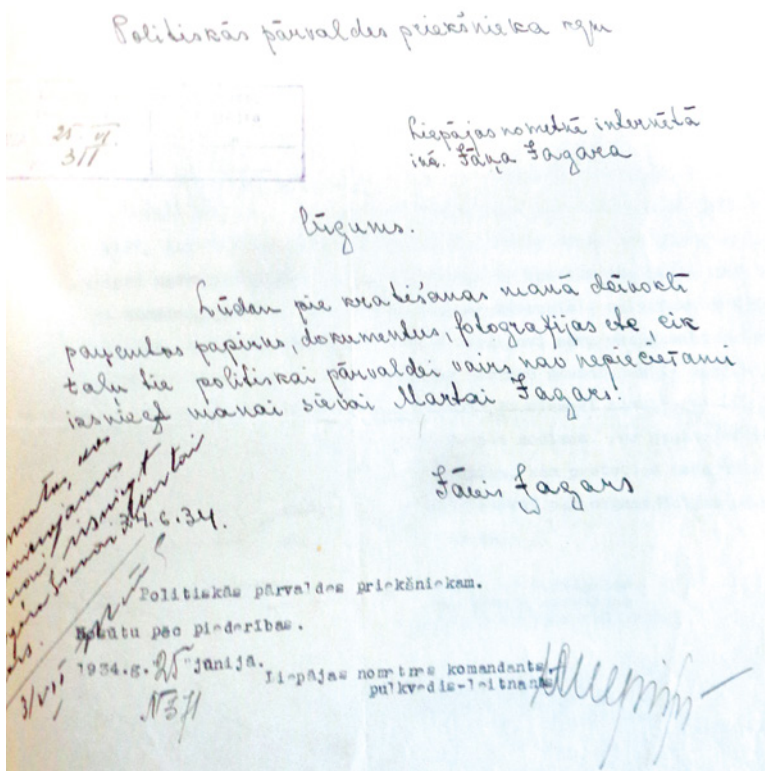 Politiskās pārvaldes priekšnieka kgm
25. VI.
Liepājas nometnē internētā
inž. Jāņa Jagara
lūgums.
Lūdzu pie kratīšanas manā dzīvoklī
paņemtos papīrus, dokumentus, fotografijas etc, cik
tālu tie politiskai pārvaldei vairs nav nepieciešami
izsniegt manai sievai Martai Jagars.
Jānis Jagars
24.6.34.
izsniegt
Martai
3/VII
Politiskās pārvaldes priekšniekam.
Nosūtu pēc piederības.
1934.g. "25" jūnijā.
Liepājas nometnes komandants,
pulkvedis-leitnants
№371